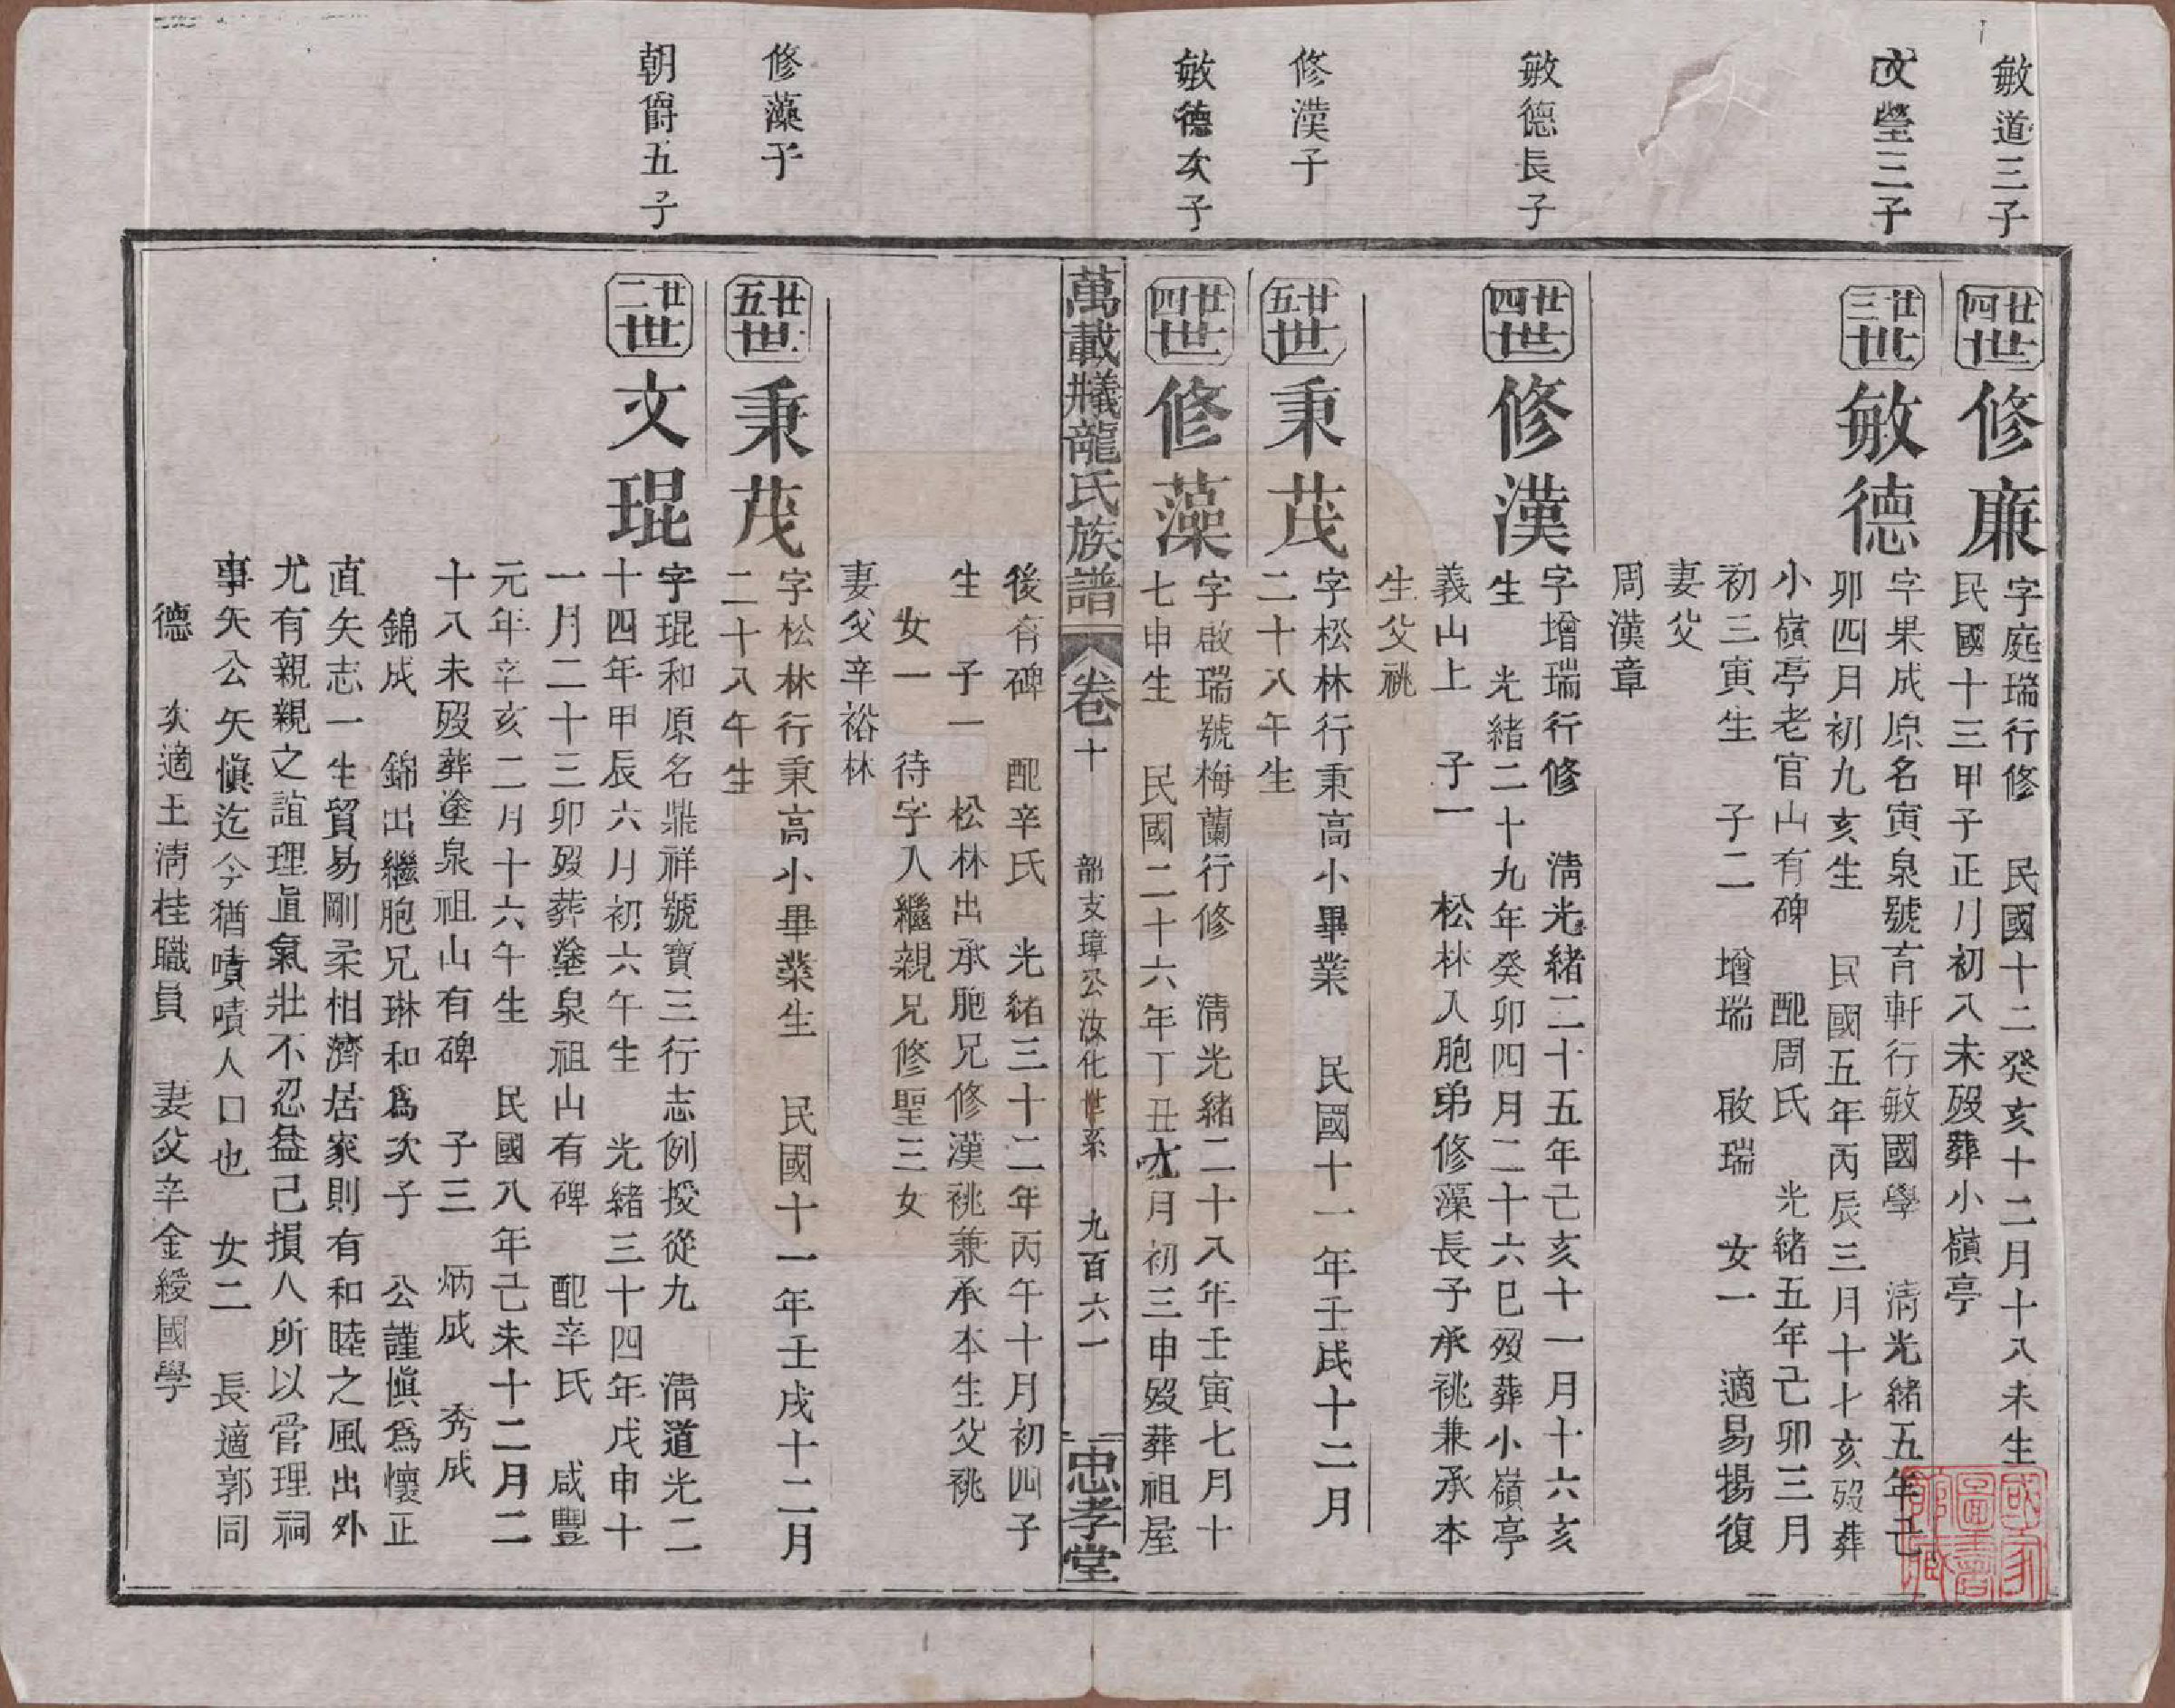 敏道三子
廿四世
修廉
字庭瑞行修　民國十二癸亥十二月十八未生
民國十三甲子正月初八未歿葬小嶺亭
文瑩三子
廿三世
敏德
字果成原名寅泉號育軒行敏國學　清光緒五年己
卯四月初九亥生　民國五年丙辰三月十七亥歿葬
小嶺亭老官山有碑　配周氏　光緒五年己卯三月
初三寅生　子二　增瑞　啟瑞　女一　適易揚復
妻父
周漢章
敏德長子
廿四世
修漢
字增瑞行修　清光緒二十五年己亥十一月十六亥
生　光緒二十九年癸卯四月二十六巳歿葬小嶺亭
義山上　子一　松林入胞弟修藻長子承祧兼承本
生父祧
修漢子
廿五世
秉茂
字松林行秉高小畢業　民國十一年壬戌十二月
二十八午生
敏德次子
廿四世
修藻
字啟瑞號梅蘭行修　清光緒二十八年壬寅七月十
七申生　民國二十六年丁丑九月初三申歿葬祖屋
萬載㸢龍氏族譜　卷十　韶支璋公汝化世系　九百六一　忠孝堂
後有碑　配辛氏　光緒三十二年丙午十月初四子
生　子一　松林出承胞兄修漢祧兼承本生父祧
女一　待字入繼親兄修聖三女
妻父辛裕林
修藻子
廿五世
秉茂
字松林行秉高小畢業生　民國十一年壬戌十二月
二十八午生
朝爵五子
廿二世
文琨
字琨和原名鼎祥號寶三行志例授從九　清道光二
十四年甲辰六月初六午生　光緒三十四年戊申十
一月二十三卯歿葬塗泉祖山有碑　配辛氏　咸豐
元年辛亥二月十六午生　民國八年己未十二月二
十八未歿葬塗泉祖山有碑　子三　炳成　秀成
錦成　錦出繼胞兄琳和爲次子　公謹慎爲懷正
直矢志一生貿易剛柔相濟居家則有和睦之風出外
尤有親親之誼理直氣壯不忍益己損人所以管理祠
事矢公矢慎迄今猶嘖嘖人口也　女二　長適郭同
德　次適王清桂職員　妻父辛金綬國學
國家圖書館藏